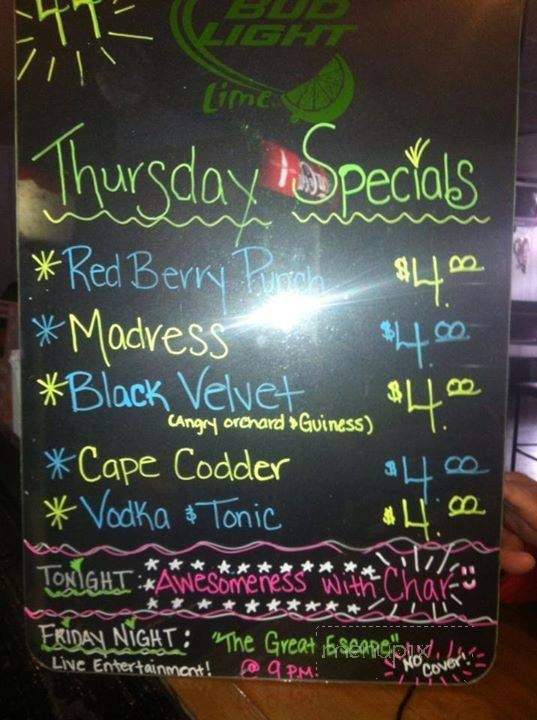 BUD
LIGHT
Lime
Thursday Specials
* Red Berry Punch $4.00
* Madress $4.00
* Black Velvet $4.00
(Angry orchard & Guiness)
* Cape Codder $4.00
* Vodka & Tonic $4.00
TONIGHT: Awesomeness with Char
FRIDAY NIGHT: "The Great Escape"
Live Entertainment! @ 9 PM! NO COVER!
menupix